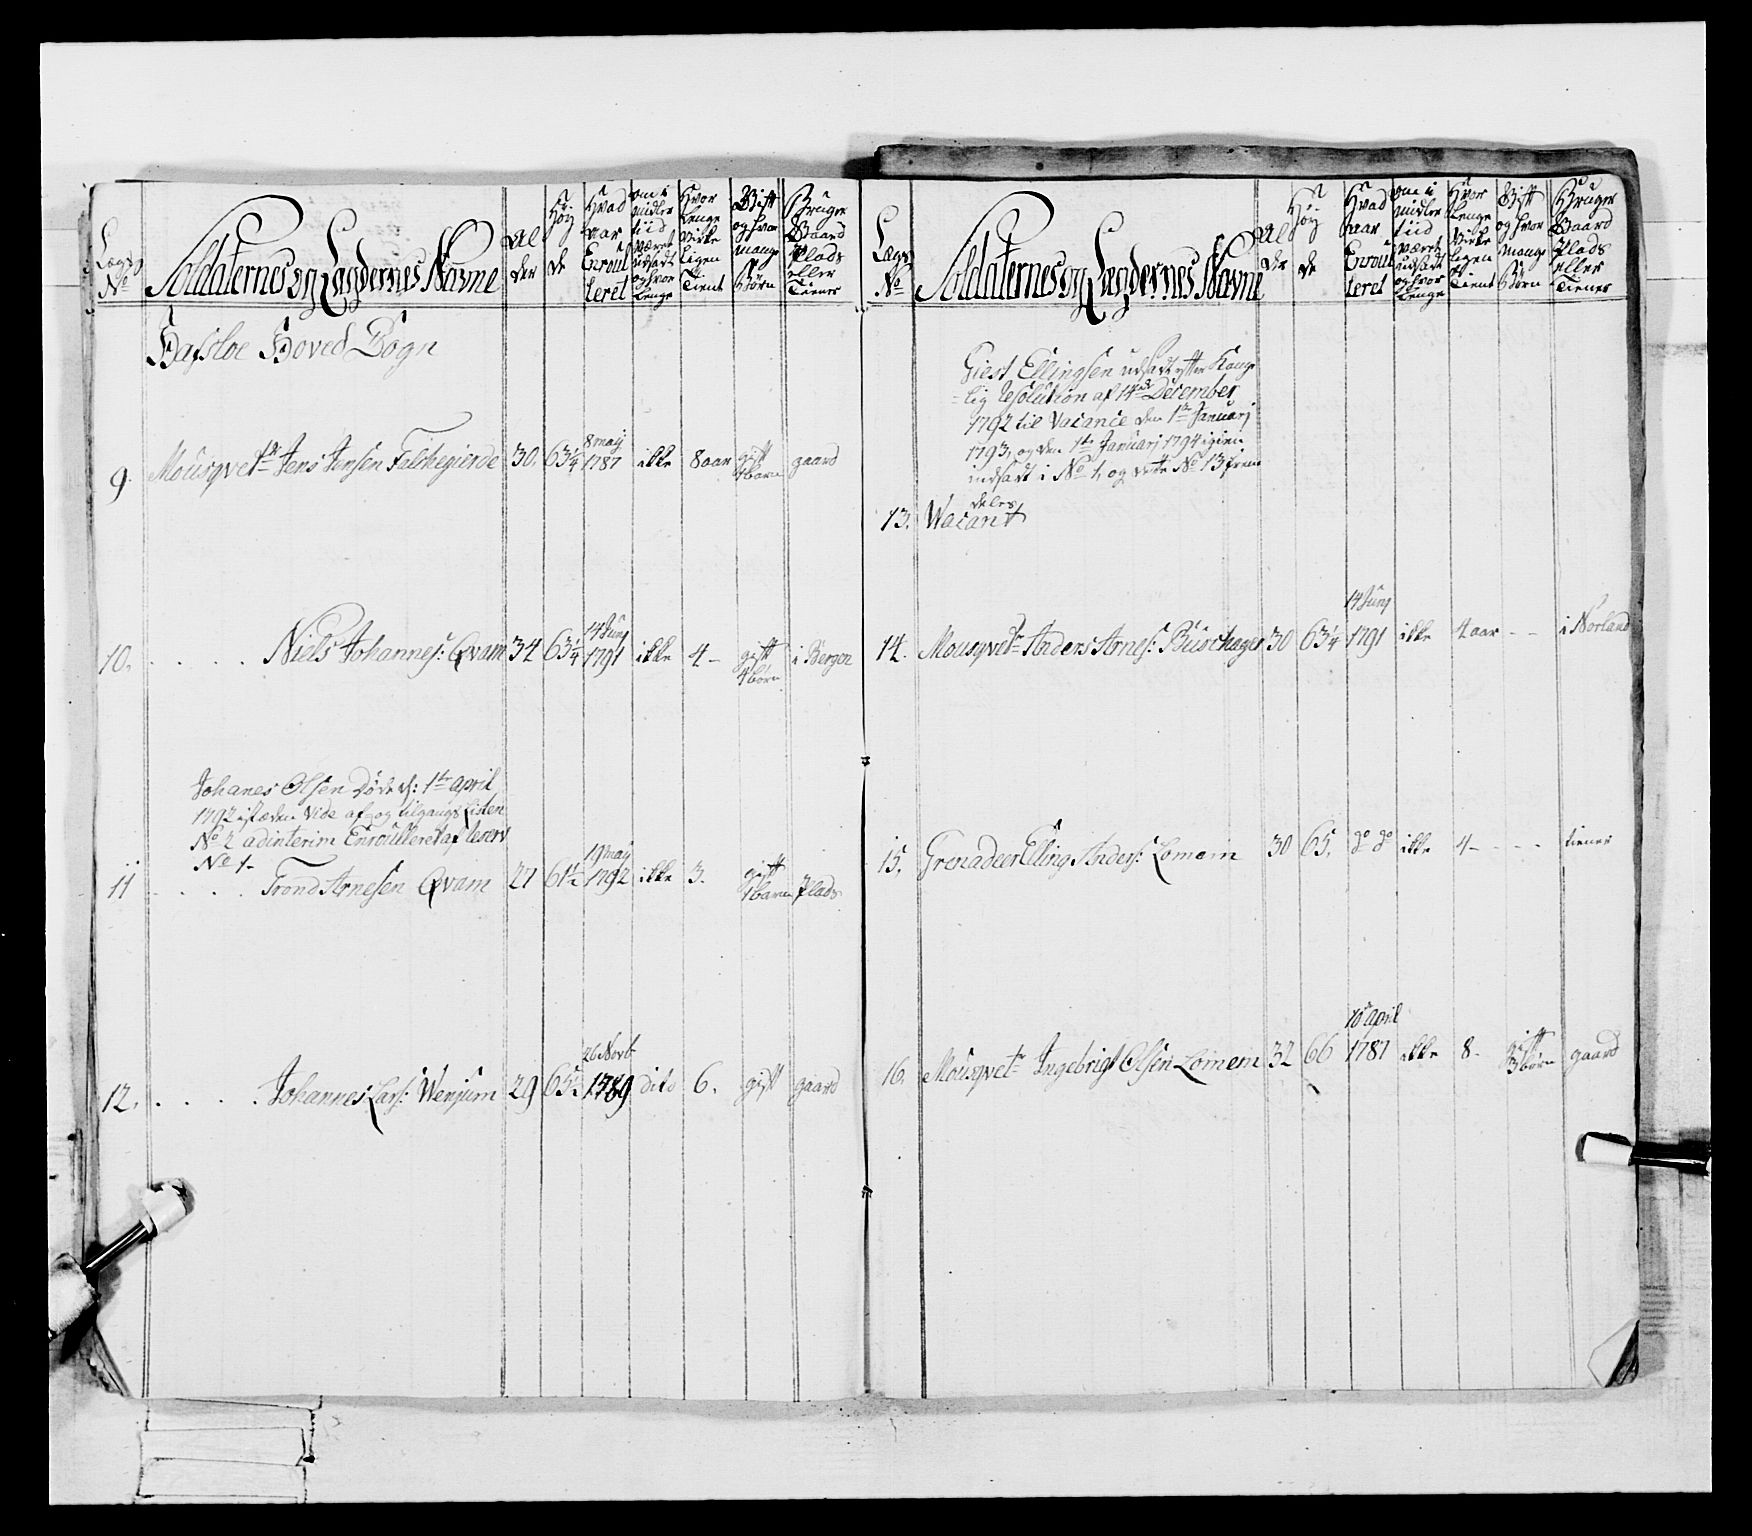 Lægs No
Soldaternes og Lægdernes Navne
Alder
Høyde
Hvad aar Enroulleret
om i midlertiid været udsadt og hvor Lenge
Hvor Lenge Virkeligen Tient
Gift og hvor mange Børn
Bruger Gaard Plads eller Tiener
Hafsloe Hoved Sogn
9. Mousqvetr Jens Jensen Falchegierde 30 63¼ 8 may 1787 ikke 8 aar gift 1 barn gaard
10. . . . . . Niels Johannes: Qvam 34 63¼ 14 Juny 1791 ikke 4 – gift 4 børn i Bergen
Johanes Olsen døde d: 1te april
1792 istæden Vide af- og tilgangs Listen
No 2 adinterim Enroulleret af reserv
No 1-
11 . . . . . Trond Arnesen Qvam 27 61½ 19 may 1792 ikke 3. gift 1 barn Plads
12. . . . . . Johannes Lars: Wenjum 29 65½ 26 Novb 1789 dito 6. gift gaard
Lægs No
Soldaternes og Lægdernes Navne
Alder
Høyde
Hvad aar Enroulleret
om i midlertiid været udsadt og hvor Lenge
Hvor Lenge Virkeligen Tient
Gift og hvor mange Børn
Bruger Gaard Plads eller Tiener
Giest Ellingsen udsadt efter Konge
lig Resolution af 14de December
1792 til Vacance den 1te Januarj
1793, og den 1te Januarj 1794 igien
indsadt i No 1, og dette No 13 frem
deles
13. Wacant
14. Mousqvetr Anders Arnes: 30 63¼ 14 Juny 1791 ikke 4 aar - - i Norland
15. Grenadeer Elling Anders: Lomem 30 65. do do ikke 4 - - - - tiener
16. Mousqvetr Ingebrigt Olsen Lomem 32 66 10 april 1787 ikke 8. gift 3 børn gaard